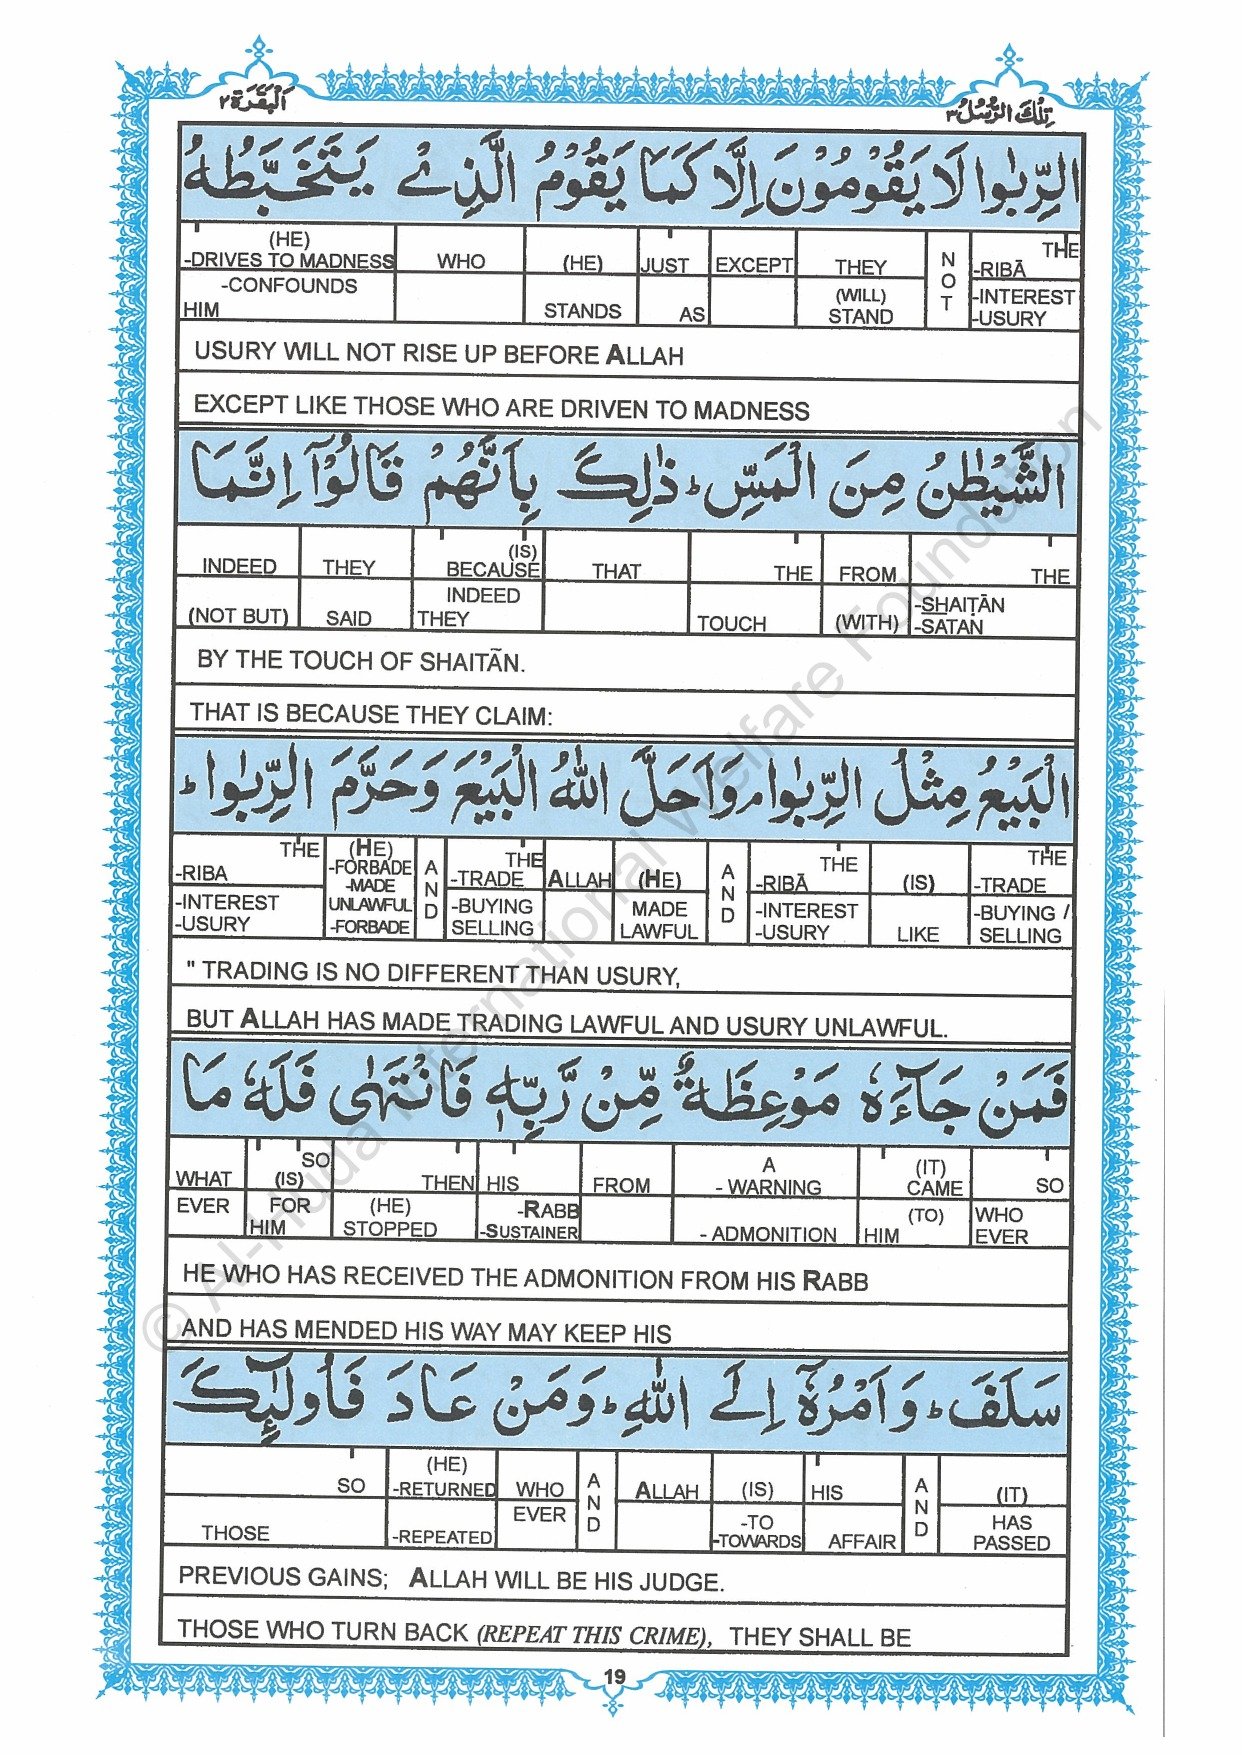 اَلْبَقَرَة٢
تِلْكَ الرُّسُلُ٣
الرِّبٰوا لَا يَقُوْمُوْنَ اِلَّا كَمَا يَقُوْمُ الَّذِىْ يَتَخَبَّطُهُ
(HE) THE
-DRIVES TO MADNESS WHO (HE) JUST EXCEPT THEY NOT -RIBĀ
-CONFOUNDS (WILL) -INTEREST
HIM STANDS AS STAND -USURY
USURY WILL NOT RISE UP BEFORE ALLAH
EXCEPT LIKE THOSE WHO ARE DRIVEN TO MADNESS
الشَّيْطٰنُ مِنَ الْمَسِّ ؕ ذٰلِكَ بِاَنَّهُمْ قَالُوْۤا اِنَّمَا
(IS)
INDEED THEY BECAUSE THAT THE FROM THE
INDEED -SHAIṬĀN
(NOT BUT) SAID THEY TOUCH (WITH) -SATAN
BY THE TOUCH OF SHAITĀN.
THAT IS BECAUSE THEY CLAIM:
الْبَيْعُ مِثْلُ الرِّبٰوا ۘ وَاَحَلَّ اللّٰهُ الْبَيْعَ وَحَرَّمَ الرِّبٰوا ؕ
THE (HE) THE THE THE
-RIBA -FORBADE AND -TRADE ALLAH (HE) AND -RIBĀ (IS) -TRADE
-MADE
-INTEREST UNLAWFUL -BUYING MADE -INTEREST -BUYING /
-USURY -FORBADE SELLING LAWFUL -USURY LIKE SELLING
" TRADING IS NO DIFFERENT THAN USURY,
BUT ALLAH HAS MADE TRADING LAWFUL AND USURY UNLAWFUL.
فَمَنْ جَآءَهٗ مَوْعِظَةٌ مِّنْ رَّبِّهٖ فَانْتَهٰى فَلَهٗ مَا
SO A (IT)
WHAT (IS) THEN HIS FROM - WARNING CAME SO
EVER FOR (HE) -RABB (TO) WHO
HIM STOPPED -SUSTAINER - ADMONITION HIM EVER
HE WHO HAS RECEIVED THE ADMONITION FROM HIS RABB
AND HAS MENDED HIS WAY MAY KEEP HIS
سَلَفَ ؕ وَاَمْرُهٗۤ اِلَى اللّٰهِ ؕ وَمَنْ عَادَ فَاُولٰٓئِكَ
(HE)
SO -RETURNED WHO AND ALLAH (IS) HIS AND (IT)
EVER -TO HAS
THOSE -REPEATED -TOWARDS AFFAIR PASSED
PREVIOUS GAINS; ALLAH WILL BE HIS JUDGE.
THOSE WHO TURN BACK (REPEAT THIS CRIME), THEY SHALL BE
19
© Al-Huda International Welfare Foundation